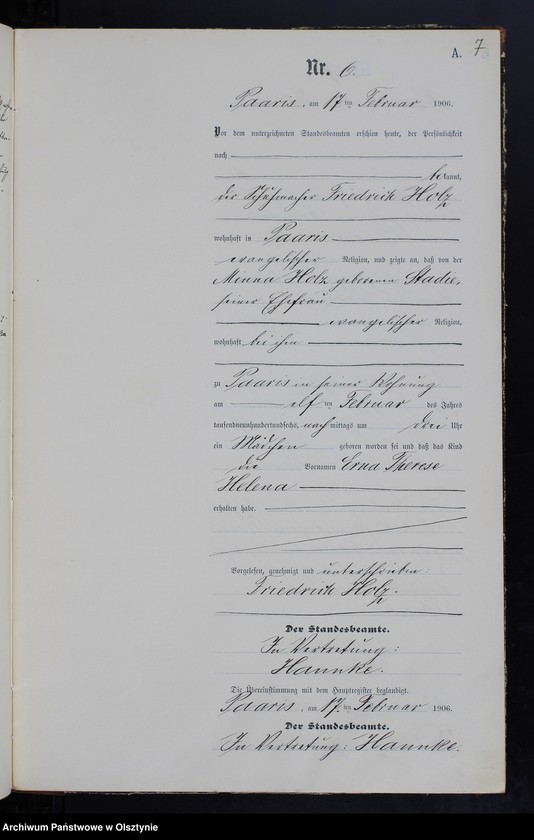 A. 7
Nr. 6.
Paaris, am 17 ten Februar 1906.
Vor dem unterzeichneten Standesbeamten erschien heute, der Persönlichkeit
nach
bekannt,
der Schuhmacher Friedrich Holz
wohnhaft in Paaris
evangelischer Religion, und zeigte an, daß von der
Minna Holz geborenen Stadie,
seiner Ehefrau
evangelischer Religion,
wohnhaft bei ihm
zu Paaris in seiner Wohnung
am elf ten Februar des Jahres
tausendneunhundertundsechs, nachmittags um drei Uhr
ein Mädchen geboren worden sei und daß das Kind
die Vornamen Erna Therese
Helena
erhalten habe.
Vorgelesen, genehmigt und unterschrieben:
Friedrich Holz.
Der Standesbeamte.
In Vertretung:
Hannke.
Die Übereinstimmung mit dem Hauptregister beglaubigt.
Paaris, am 17 ten Februar 1906.
Der Standesbeamte.
In Vertretung: Hannke.
Archiwum Państwowe w Olsztynie